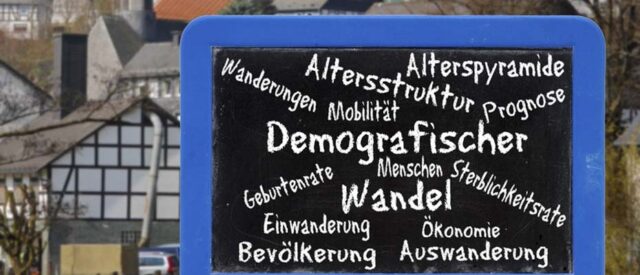 Wanderungen
Altersstruktur
Alterspyramide
Mobilität
Prognose
Demografischer
Menschen
Geburtenrate
Wandel
Sterblichkeitsrate
Einwanderung
Ökonomie
Bevölkerung
Auswanderung